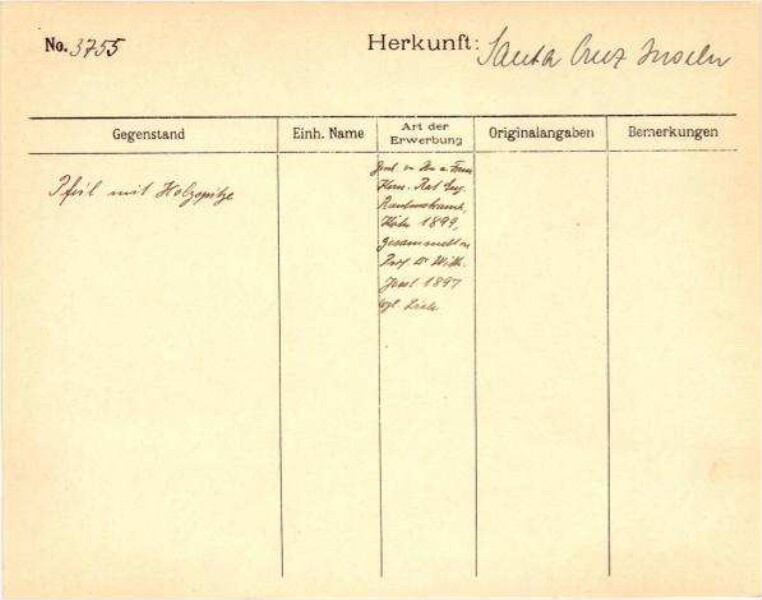 No. 3755
Herkunft: Santa Cruz Inseln
Gegenstand
Einh. Name
Art der
Erwerbung
Originalangaben
Bemerkungen
Pfeil mit Holzspitze
Kom. Rat Eug.
Rautenstrauch,
Köln 1899,
gesammelt v.
Prof. Dr Wilh.
Joest 1897
vgl. Liste